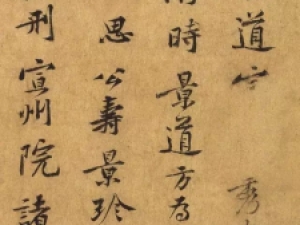 道宇
秀
時景道方為
思公壽景珍
刑宣州院諸